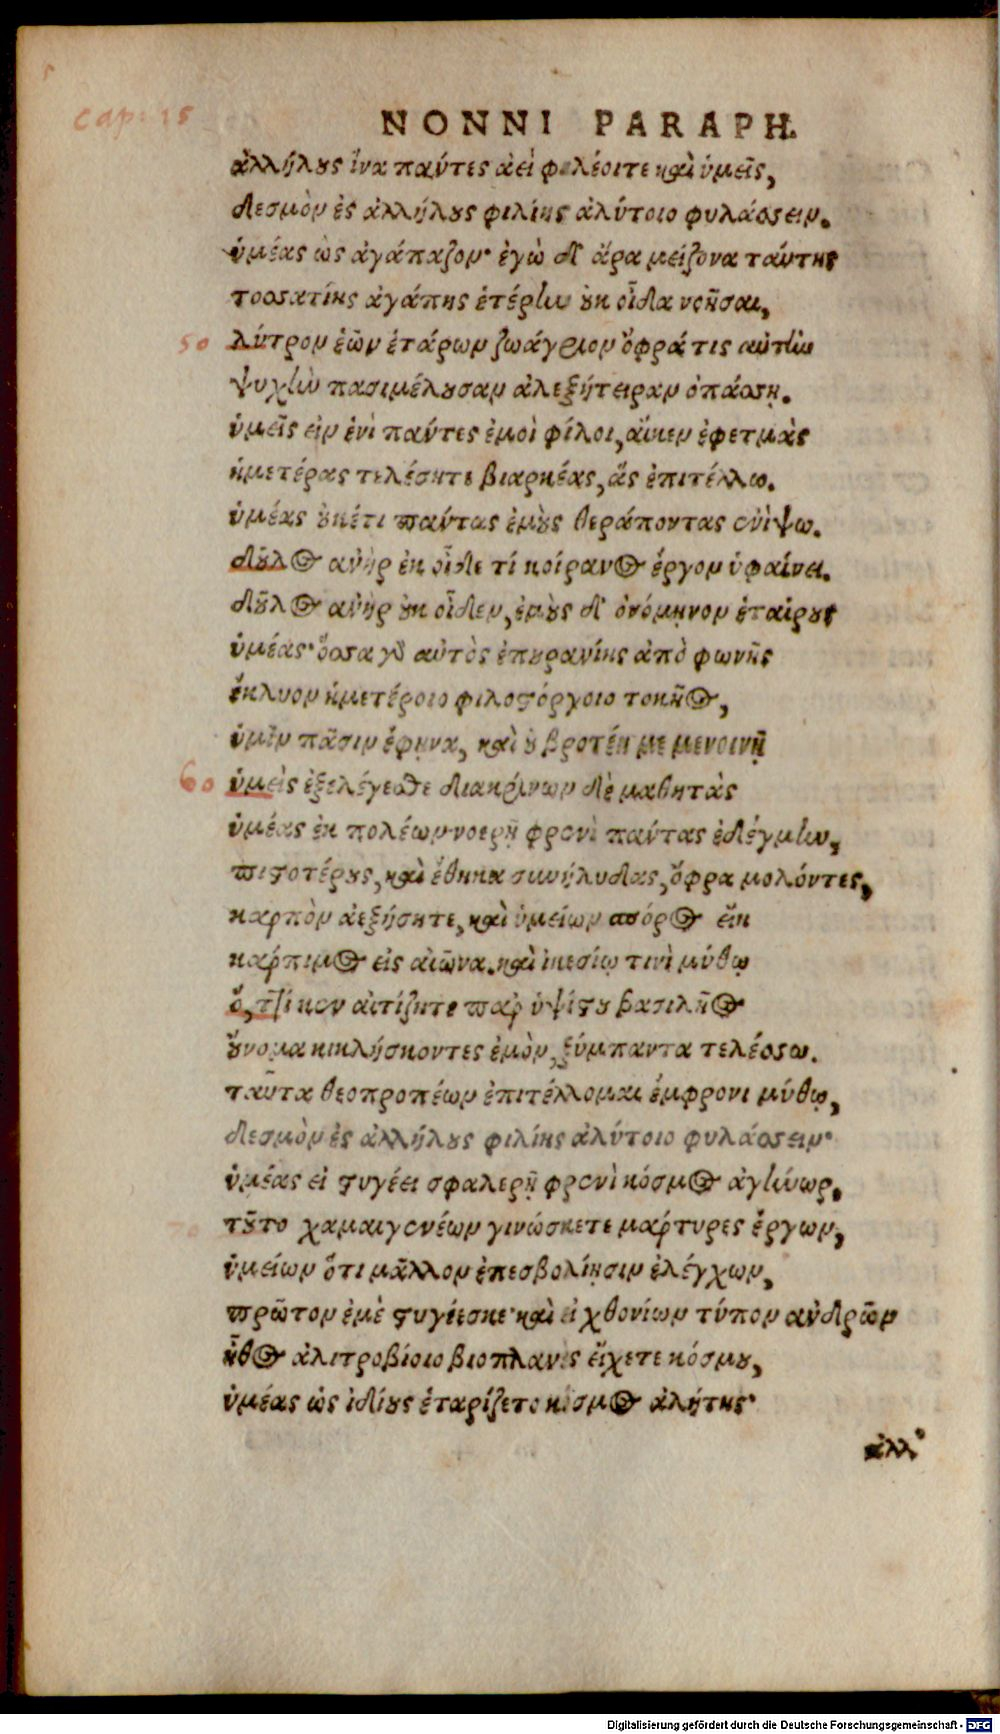 cap: 15
NONNI PARAPH.
ἀλλήλους ἵνα πάντες ἀεὶ φιλέοιτε καὶ ὑμεῖς,
δεσμὸν ἐς ἀλλήλους φιλίης ἀλύτοιο φυλάσσειν.
ὑμέας ὡς ἀγάπαζον· ἐγὼ δ' ἄρα μείζονα ταύτης
τοσσατίης ἀγάπης ἑτέρην οὐκ οἶδα νοῆσαι,
50 λύτρον ἑῶν ἑτάρων ζωάγριον ὄφρά τις αὐτὴν
ψυχὴν πασιμέλουσαν ἀλεξήτειραν ὀπάσσῃ.
ὑμεῖς εἰν ἑνὶ πάντες ἐμοὶ φίλοι, αἴκεν ἐφετμὰς
ἡμετέρας τελέσητε βιαρκέας, ἃς ἐπιτέλλω.
ὑμέας οὐκέτι πάντας ἐμοὺς θεράποντας ἐνίψω.
δοῦλος ἀνὴρ ἐκ οἶδε τί κοίρανος ἔργον ὑφαίνει.
δοῦλος ἀνὴρ οὐκ οἶδεν, ἐμοὺς δ' ὀνόμηνον ἑταίρους
ὑμέας· ὅσσα γὸ αὐτὸς ἐπουρανίης ἀπὸ φωνῆς
ἔκλυον ἡμετέροιο φιλοστόργοιο τοκῆος,
ὑμῖν πᾶσιν ἔφηνα, καὶ οὐ βροτέη με μενοινῇ
60 ὑμεὶς ἐξελέγεσθε διακρίνων δὲ μαθητὰς
ὑμέας ἐκ πολέων νοερῇ φρενὶ πάντας ἐδέγμην,
πιστοτέρους, καὶ ἔθηκα συνήλυδας, ὄφρα μολόντες,
καρπὸν ἀεξήσητε, καὶ ὑμείων σπόρος εἴη
κάρπιμος εἰς αἰῶνα. καὶ ἱκεσίῳ τινὶ μύθῳ
ὅ, τ̓τί κεν αἰτίζητε παρ' ὑψίστου βασιλῆος
οὔνομα κικλήσκοντες ἐμὸν, ξύμπαντα τελέσσω.
ταῦτα θεοπροπέων ἐπιτέλλομαι ἔμφρονι μύθῳ,
δεσμὸν ἐς ἀλλήλους φιλίης ἀλύτοιο φυλάσσειν·
ὑμέας εἰ στυγέει σφαλερῇ φρενὶ κόσμος ἀγήνωρ,
70 τοῦτο χαμαιγενέων γινώσκετε μάρτυρες ἔργων,
ὑμείων ὅτι μᾶλλον ἐπεσβολίῃσιν ἐλέγχων,
πρῶτον ἐμὲ στυγέεσκε· καὶ εἰ χθονίων τύπον ἀνδρῶν
ἦθος ἀλιτροβίοιο βιοπλανὲς εἴχετε κόσμου,
ὑμέας ὡς ἰδίους ἑταρίζετο κόσμος ἀλήτης·
ἀλλ'
Digitalisierung gefördert durch die Deutsche Forschungsgemeinschaft - DFG